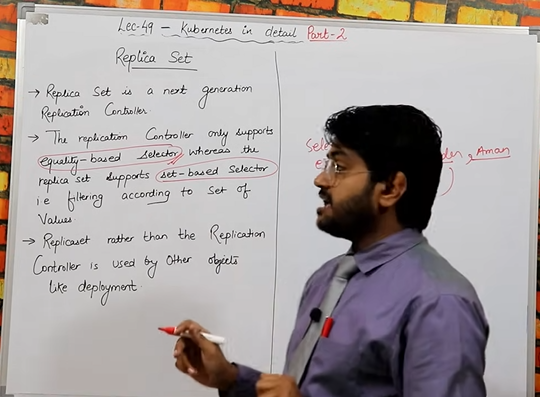 Lec-49 - Kubernetes in detail Part-2
Replica Set
→ Replica Set is a next generation
Replication Controller.
→ The replication Controller only supports
equality-based selector whereas the
replica set supports set-based Selector
i.e filtering according to Set of
Values
→ Replicaset rather than the Replication
Controller is used by Other objects
like deployment.
, Aman